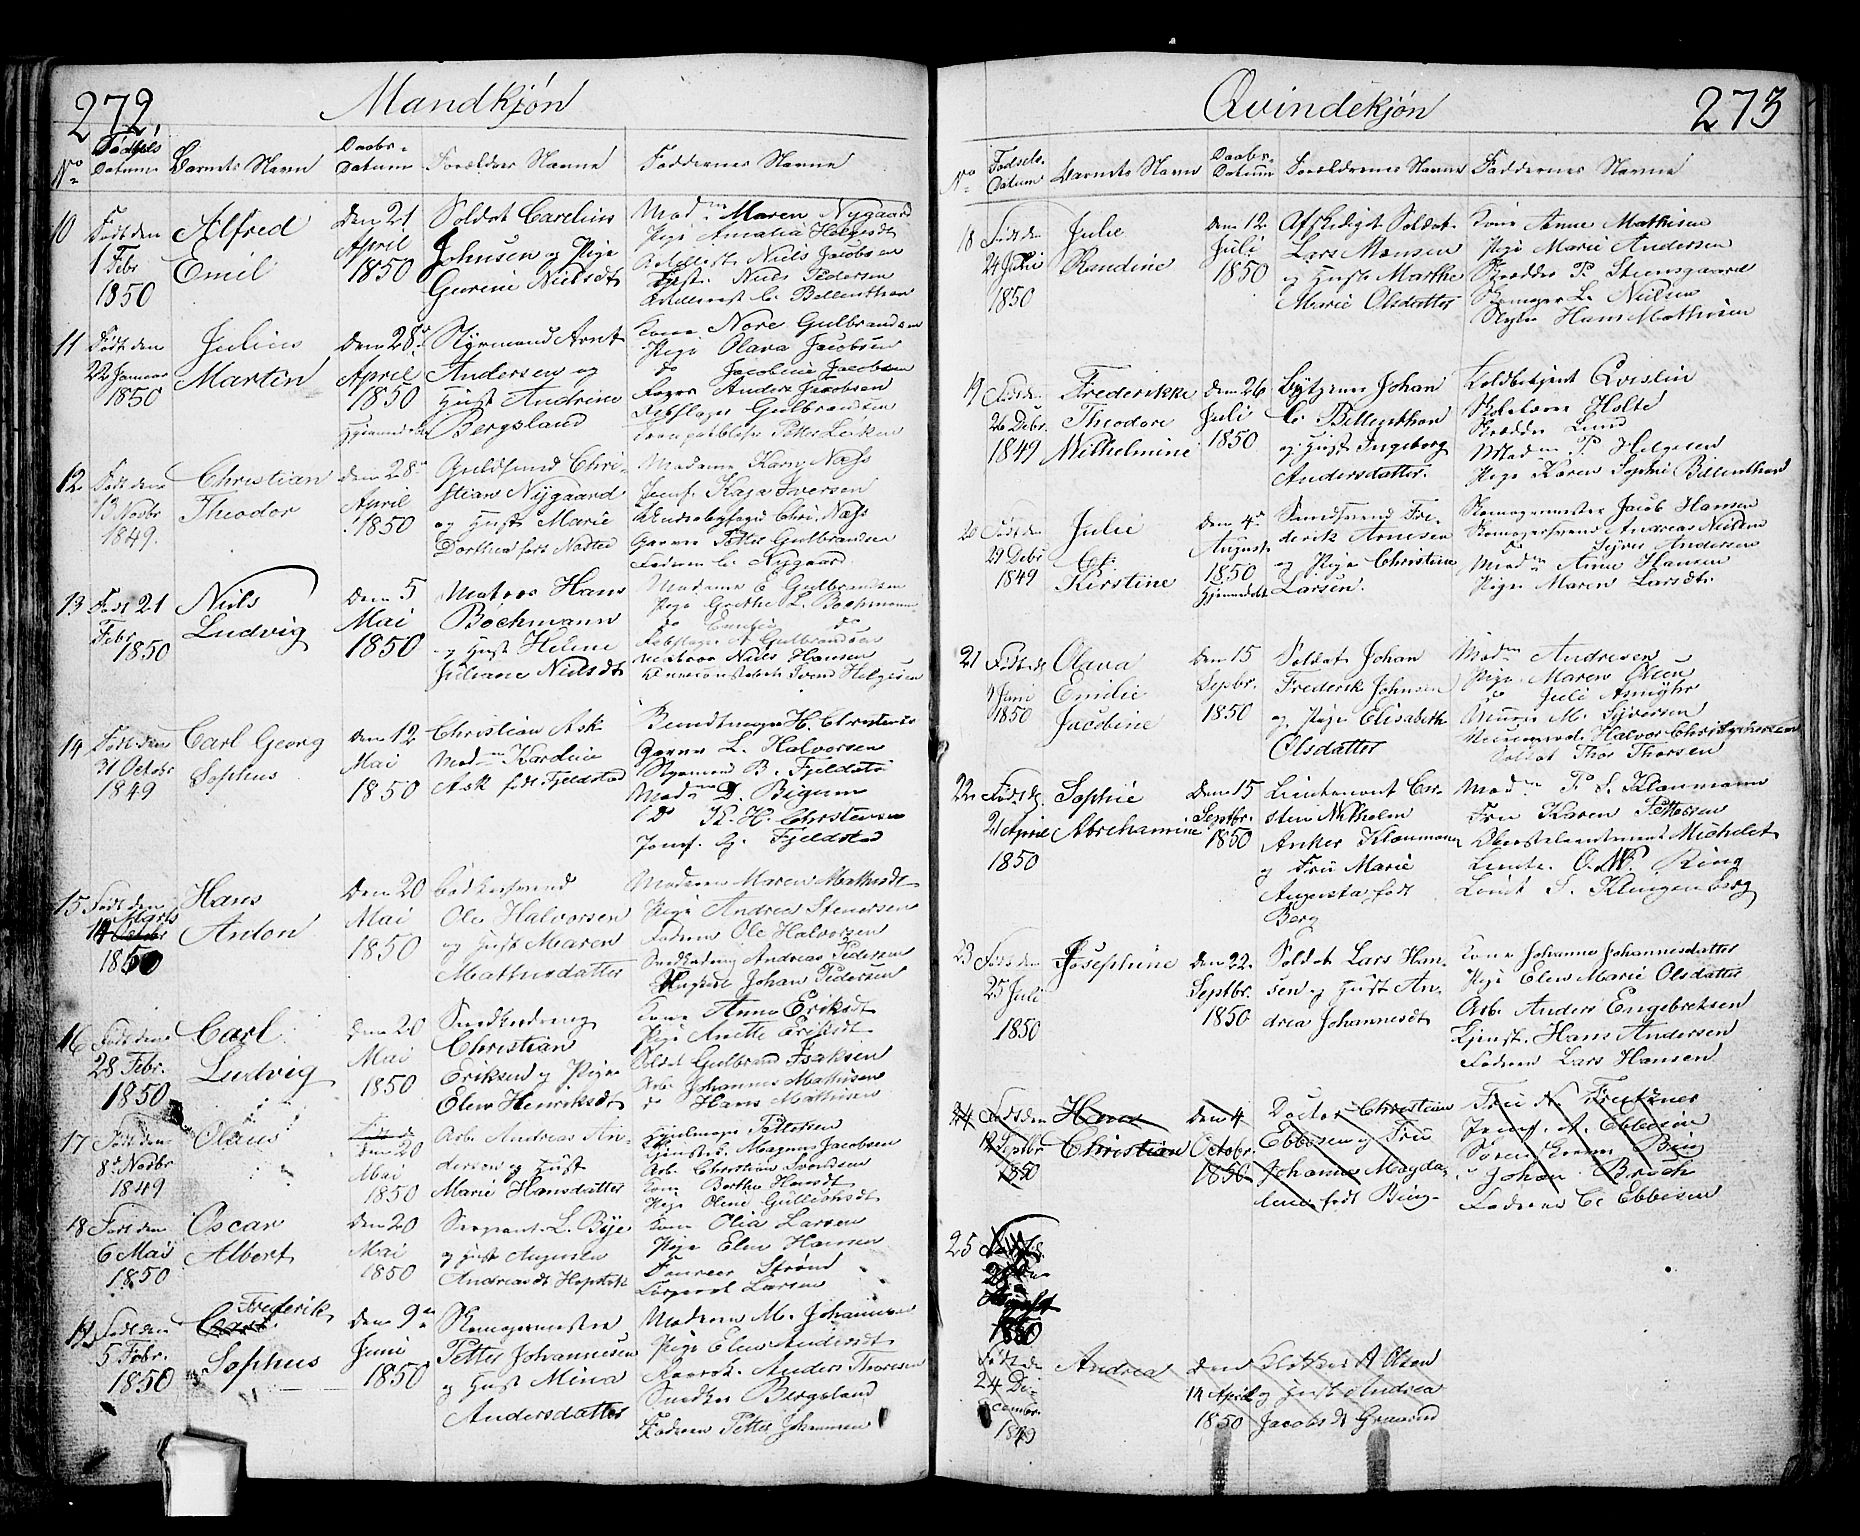 272
Mandkjøn
No
Fødsels Datum
Barnets Navn
Daabs-Datum
Forældres Navne
Faddernes Navne
10
Født den
1 Febr
1850
Alfred
Emil
den 21
April
1850
Soldat Carelius
Johnsen og Pige
Gurine Nielsdt
Mad.m Maren Nygaard
Pige Amalia
Niels Jacobsen
Niels Pedersen
C. Bellenthin
11
Født den
22 Januar
1850
Julius
Martin
den 28de
April
1850
Styrmand Arnt
Andersen og
Hust Andrine
Bergsland
Kone Nore Gulbrandsen
Pige Olava Jacobsen
do Jacobine Jacobsen
Anders Jacobsen
Rebslager Gulbrandsen
Petter
12
Født den
13 Novbr
1849.
Christian
Theodor
den 28de
April
1850
Guldsmed Chri-
stian Nygaard
og Hust Marie
Dorthea født Næsted
Madame Karn Næss
Jomf. Kaja Iversen
Chr. Næss
Garver Petter Gulbrandsen
Faderen C. Nygaard
13
Født 21
Febr
1850
Niels
Ludvig
den 5
Mai
1850
Matros Hans
Bochmann
og Hust Helene
Juliane Nielsdt
Madame E Gulbrandsen
Pige Grethe L. Bochmann
do Emilie do
Rebslager A Gulbrandsen
Matros Niels Hansen
Svend Helgesen
14
Født den
31 Octobr
1849
Carl Georg
Sophus
den 12
Mai
1850
Christian Ask
Mad.m Karoline
Ask født Fjeldstad
Buntmager H. Christensen
Garver L. Halvorsen
Styrmand B. Fjeldstad
Mad.m D. Bigum
do K. H. Christensen
Jomf. G. Fjeldstad
15
Født den
Marts
14 Octobr
1850
Hans
Anton
den 20
Mai
1850
Bødkersvend
Ole Halvorsen
og Hust Maren
Mathisdatter
Madam Maren Mathisdt
Pige Andrea Stenersen
Faderen Ole Halvorsen
Snedkerdreng Andreas Pedersen
Johan Pedersen
16
Født den
28 Febr.
1850
Carl
Ludvig
den 20
Mai
1850
Snedkerdreng
Christian
Eriksen og Pige
Elen Henriksdt
Kone Anna Eriksdt
Pige Anette Eriksdt
Soldat Gulbrand Isaksen
Arb. Johannes Mathisen
do Hans Mathisen
17
Født den
8de Novbr
1849
Olaus
den 20
Mai
1850
Arb. Andreas An-
dersen og Hust
Marie Hansdatter
Pettersen
Magnus Jacobsen
Arb. Christian Svendsen
Kone Berthe Hansdt
Pige Oline Gulliksdt
18
Født den
6 Mai
1850
Oscar
Albert
den 20
Mai
1850
Sergeant L. Bye
og Hust Augusta
Andreasdt
Kone Olia Larsen
Pige Elen Hansen
Fourer Strønd
Corporal Larsen
19
Født den
5 Febr.
1850
Frederik
Carl
Sophus
den 9de
Juni
1850
Skomagermester
Petter Johannesen
og Hust Mina
Andersdatter
Madam M. Johannesen
Pige Elen Andersdt
Anders Thoresen
Snedker Bergsland
Faderen Petter Johannesen
Qvindekjøn
273
No
Fødsels-Datum
Barnets Navn
Daabs-Datum
Forældrenes Navne
Faddernes Navne
18
Født den
24
1850
Julie
Randine
den 12
Juli
1850
Afskediget Soldat
Lars Monsen
og Hust Marthe
Marie Olsdatter
Kone Anne Mathisen
Pige Marie Andersen
Skrædder P. Steensgaard
Skomager L. Nielsen
Hans Mathisen
19
Født den
26 Debr.
1849
Frederikke
Theodore
Wilhelmine
den 26
Juli
1850
Bytjener Johan
C. Bellenthin
og Hust Ingeborg
Andersdatter.
Toldbetjent Qvislin
Holte
Skrædder Lund
Madam P. Helgesen
Pige Karen Sophie Bellenthin
20
Født den
29 Debr
1849
Julie
Kirstine
den 4de
August
1850
Hjemmedøbt
Svend Fre-
derik Arnesen
og Pige Christine
Larsen.
Skomagermester Jacob Hansen
Skomagersvend Andreas Nielsen
do Syver Andersen
Madm Anne Hansen
Pige Maren Larsdt.
21
Født d.
9 Juni
1850
Olava
Emilie
Jacobine
den 15
Sepbr.
1850
Soldat Johan
Frederik Johnsen
og Pige Elisabeth
Olsdatter
Madm Andresen
Pige Maren Olsen
do Juli Asmyhr
Murer M. Syversen
Halvor Christophersen
Soldat Thor Thorsen
22
Født d.
21 April
1850
Sophie
Abrehamine
den 15
Septbr.
1850
Lieutenant Chri-
stin Wilhelm
Anker Klaumann
og Fru Marie
Augusta født
Berg
Madm P. S. Klaumann
Fru Karen Pettersen
Oberstlieutenant Michelet
Lieutn. O. W. Ring
Lieut S. Klingenberg
23
Født den
25 Juli
1850
Josephine
den 22
Septbr.
1850
Soldat Lars Han-
sen og Hust An-
drea Johannesdt
Kone Johanne Johannesdatter
Pige Elen Marie Olsdatter
Arb. Anders Engebretsen
Tjenst. Hans Andersen
Faderen Lars Hansen
24
Født den
12 Septbr
1850
Hans
Christian
den 4
Octobr.
1850
Doctor Christian
Ebbesen og Fru
Johanne Magda-
lene født Bing
Fru
Jomf. A. Ebbesen
Søren Bing
Johan Broch
Faderen C. Ebbesen
25
Født d.
August
1850
Født den
24 De-
cember
1849
Andrea
den
14 April
1850
Klokker A Olsen
og Hust Andrea
Jacobsdt